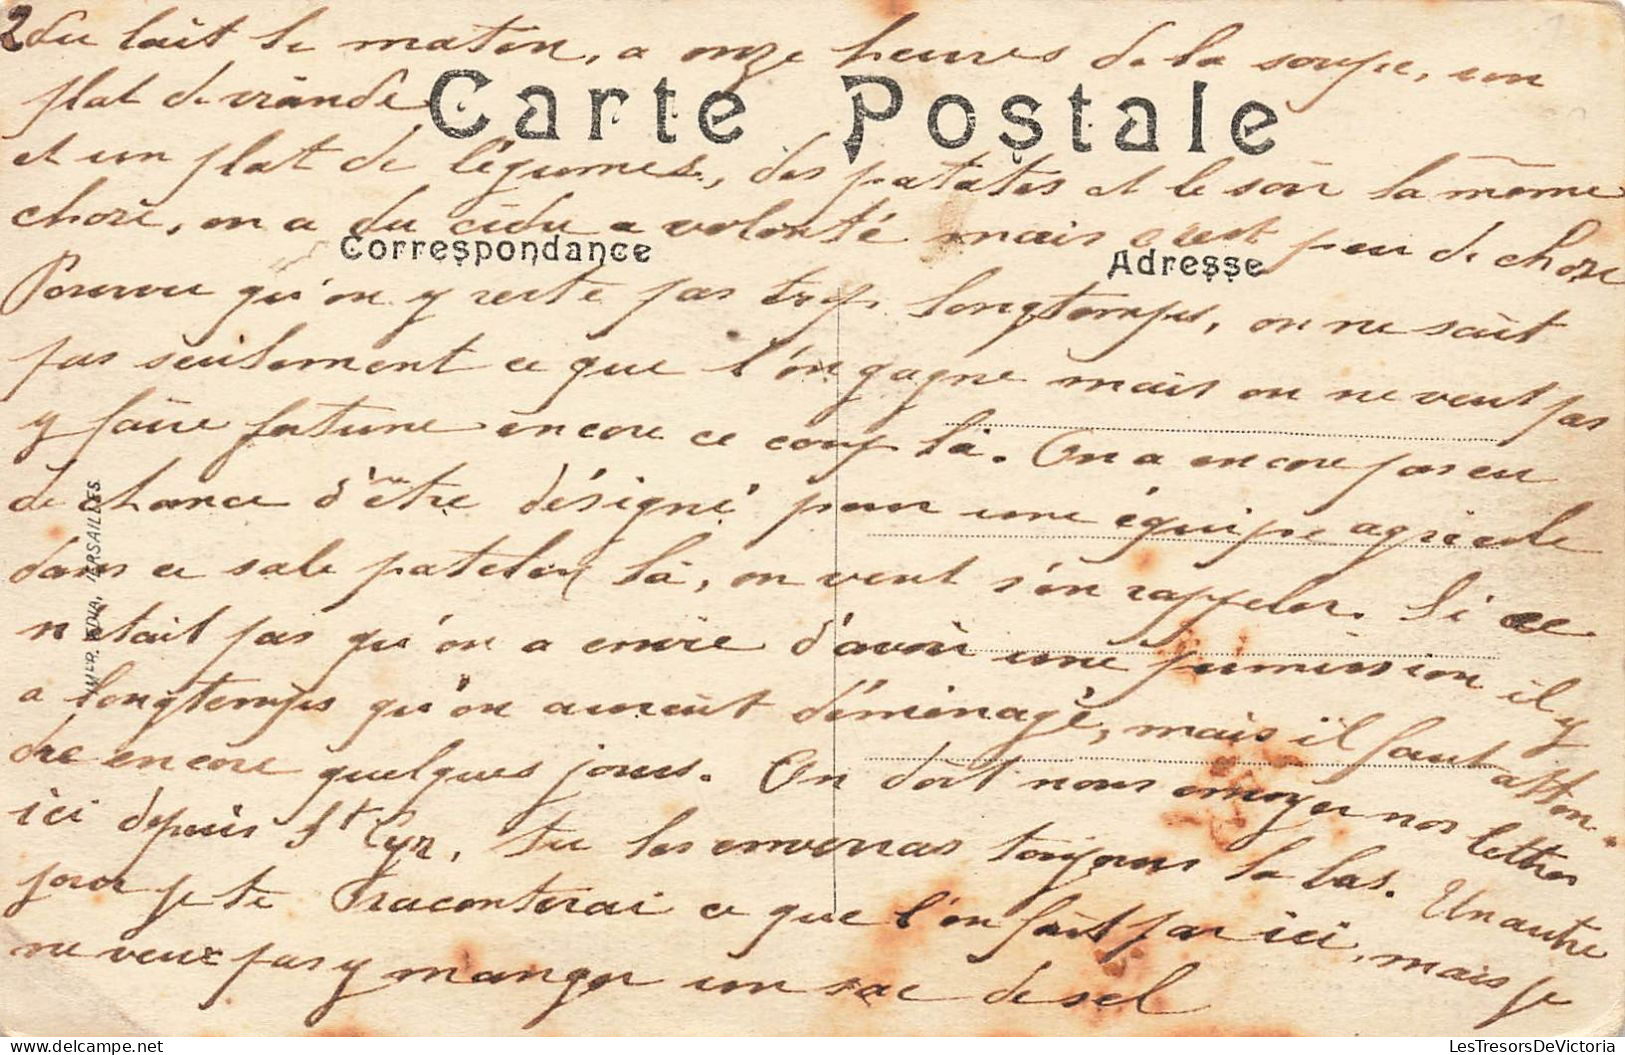 2 du lait le matin, a onze heures de la soupe, un
plat de viande
Carte Postale
et un plat de légumes, des patates et le soir la même
chose, on a du cidre a volonté mais c'est peu de chose
Correspondance
Adresse
Pourvu qu'on y reste pas trop longtemps, on ne sait
pas seulement ce que l'on gagne mais on ne veut pas
y faire fortune encore ce coup là. On a encore pas eu
de chance d'être désigné pour une équipe agricole
dans ce sale patelin là, on veut s'en rappeler. Si ce
n'etait pas qu'on a envie d'avoir une permission il y
a longtemps qu'on aurait déménagé, mais il faut atten-
dre encore quelques jours. On doit nous envoyer nos lettres
ici depuis St Cyr, tu les enverras toujours la bas. Un autre
jour je te raconterai ce que l'on fait par ici, mais je
ne veux pas y manger un sac de sel
IMP. EDIA, VERSAILLES.
LesTresorsDeVictoria